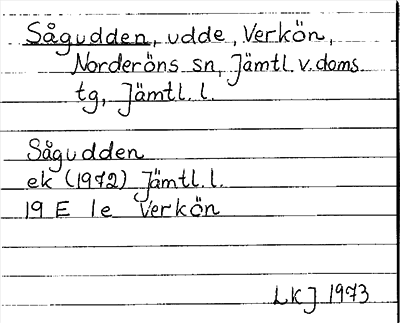 Sågudden, udde, Verkön,
Norderöns sn, Jämtl. v. doms.
tg, Jämtl. l.
Sågudden
ek (1972) Jämtl. l.
19 E 1e Verkön
LKJ 1973